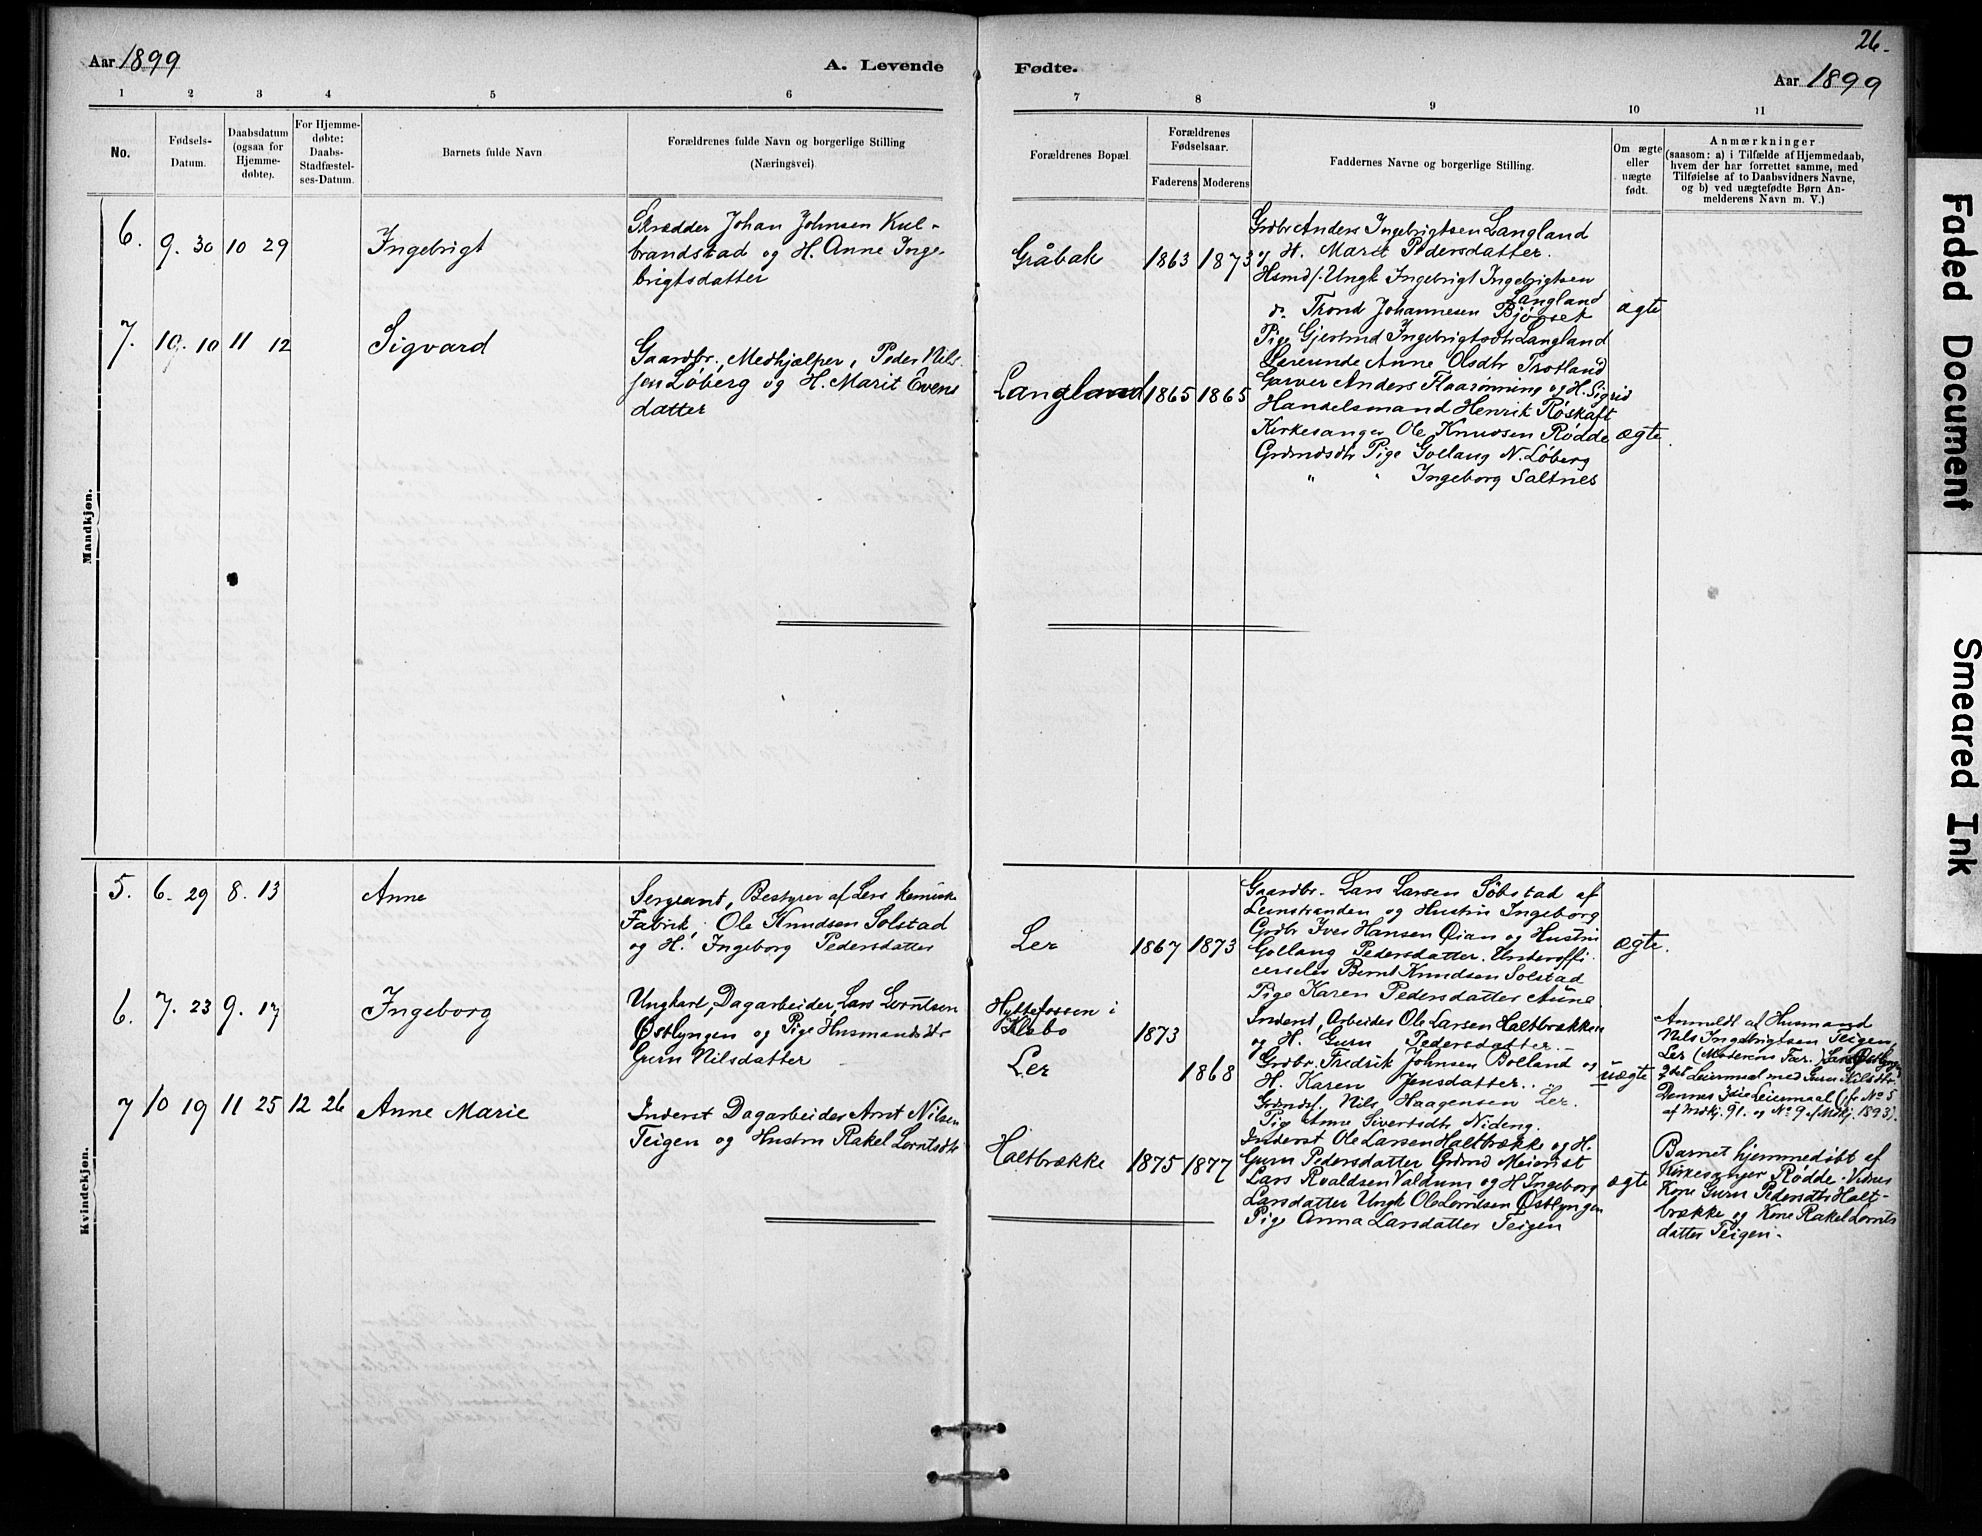 26.
Aar 1899
A. Levende
Fødte.
Aar 1899
1 2 3 4 5 6
7 8 9 10 11
No.
Fødsels-
Datum.
Daabsdatum
(ogsaa for
Hjemme-
døbte).
For Hjemme-
døbte:
Daabs-
Stadfæstel-
ses-Datum.
Barnets fulde Navn
Forældrenes fulde Navn og borgerlige Stilling
(Næringsvei)
Forældrenes Bopæl.
Forældrenes
Fødselsaar.
Faderens Moderens
Faddernes Navne og borgerlige Stilling.
Om ægte
eller
uægte
født.
Anmærkninger
(saasom: a) i Tilfælde af Hjemmedaab,
hvem der har forrettet samme, med
Tilføielse af to Daabsvidners Navne,
og b) ved uægtefødte Børn An-
melderens Navn m. V.)
Mandkjøn.
6. 9. 30 10 29
Ingebrigt
Skrædder Johan Johnsen Kul-
brandstad og H. Anne Inge-
brigtsdatter
Gråbak
1863 1873
Grdbr Anders Ingebrigtsen Langland
og H. Marit Pedersdatter.
Hsmds. Ungk Ingebrigt Ingebrigtsen
Langland
do Trond Johannesen Bjørset
Pige Gjertrud Ingebrigtsdtr Langland
Læreinde Anne Olsdtr Trotland
ægte
7. 10. 10 11 12
Sigvard
Gaardbr., Medhjælper, Peder Nils
sen Løberg og H. Marit Evens
datter
Langland
1865 1865
Garver Anders Flaarønning og H. Sigrid
Handelsmand Henrik Røskaft
Kirkesanger Ole Knudsen Rødde
Grdmdsdtr Pige Gollaug N. Løberg
" " Ingeborg Saltnes
ægte.
Kvindekjøn.
5. 6. 29 8. 13
Anne
Sergeant, Bestyrer af Lers kemiske
Fabrik, Ole Knudsen Solstad
og H. Ingeborg Pedersdatter
Ler
1867 1873
Gaardbr. Lars Larsen Søbstad af
Leinstranden og Hustru Ingeborg
Grdbr Iver Hansen Øian og Hustru
Gollaug Pedersdatter. Underoffi-
cerselev Bernt Knudsen Solstad
Pige Karen Pedersdatter Aune.
ægte.
6. 7. 23 9. 17
Ingeborg
Ungkarl, Dagarbeider, Lars Lorntsen
Østlyngen og Pige Husmandsdtr
Guru Nilsdatter
Hyttefossen i
Klæbo
Ler
1873
1868
Inderst, Arbeider Ole Larsen Haltbrækken
og H. Guru Pedersdatter. –
Grdbr. Fredrik Johnsen Bolland og
H. Karen Jensdatter.
Grdmds. Nils Haagensen Ler.
Pige Anne Sivertsdtr Nideng.
uægte
Anmeldt af Husmand
Nils Ingebrigtsen Teigen,
Ler (Moderens Far.) Lars Østlyngens
2det Leiermaal med Guru Nilsdtr.
Dennes 3die Leiermaal (jfr No 5
af Mdkj. 91. og No 9 af Mdkj. 1893).
7 10 19 11 25 12 26
Anne Marie
Inderst Dagarbeider Arnt Nilsen
Teigen og Hustru Rakel Lorntsdtr
Haltbrække
1875 1877
Inderst Ole Larsen Haltbrække og H.
Guru Pedersdatter Grdmd Meierist
Lars Roaldsen Valdum og H Ingeborg
Larsdatter Ungk Ole Lorntsen Østlyngen
Pige Anna Larsdatter Teigen
ægte
Barnet hjemmedøbt af
Kirkesanger Rødde. Vidner
Kone Guru Pedersdtr Halt-
brække og Kone Rakel Lornts
datter Teigen.
Faded Document
Smeared Ink